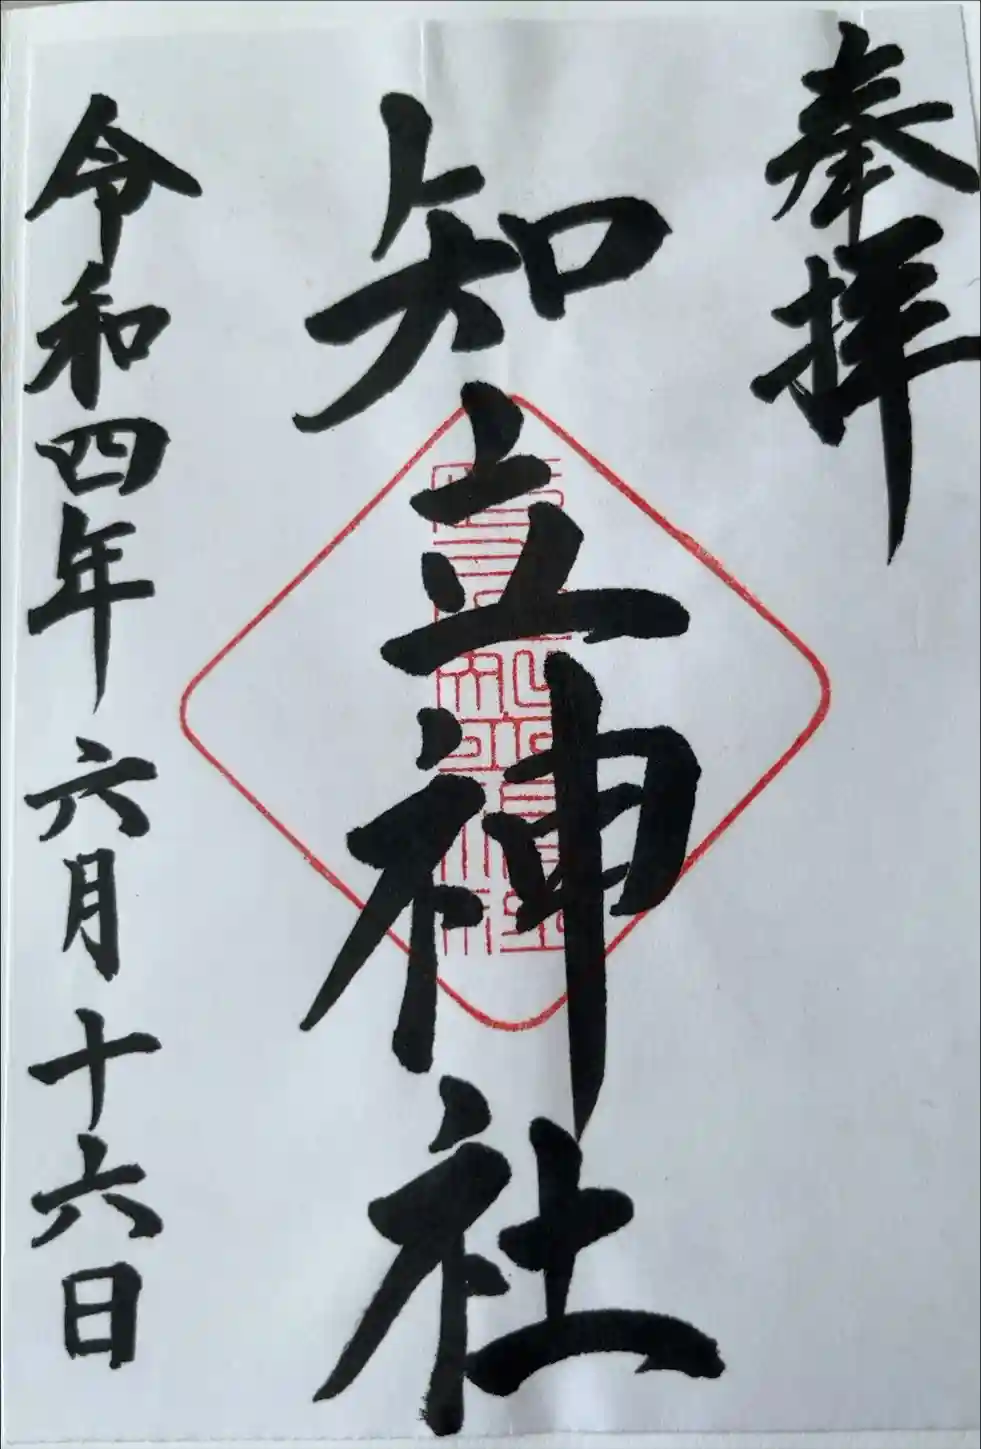 奉拝
知立神社
令和四年 六月十六日